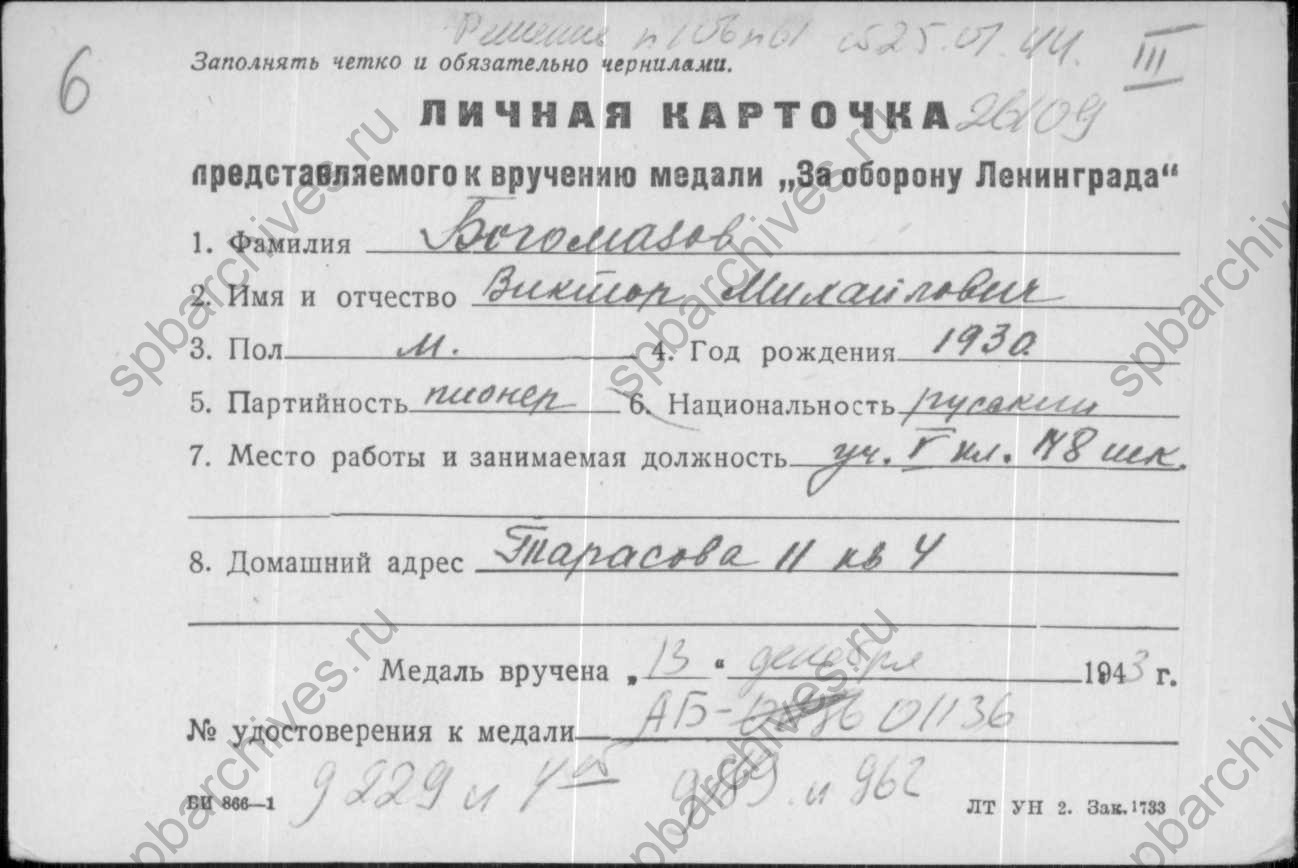 Решение п106п61 от 25.01.44. III
6
Заполнять четко и обязательно чернилами.
ЛИЧНАЯ КАРТОЧКА 26109
представляемого к вручению медали „За оборону Ленинграда“
1. Фамилия Богомазов
2. Имя и отчество Виктор Михайлович
3. Пол м. 4. Год рождения 1930
5. Партийность пионер 6. Национальность русский
7. Место работы и занимаемая должность уч. V кл. 48 шк.
8. Домашний адрес Тарасова 11 кв 4
Медаль вручена „13“ декабря 1943 г.
№ удостоверения к медали АБ-01136
9229 и
и 962
БИ 866—1 ЛТ УН 2. Зак. 1733
spbarchives.ru
spbarchives.ru
spbarchives.ru
spbarchives.ru
spbarchives.ru
spbarchives.ru